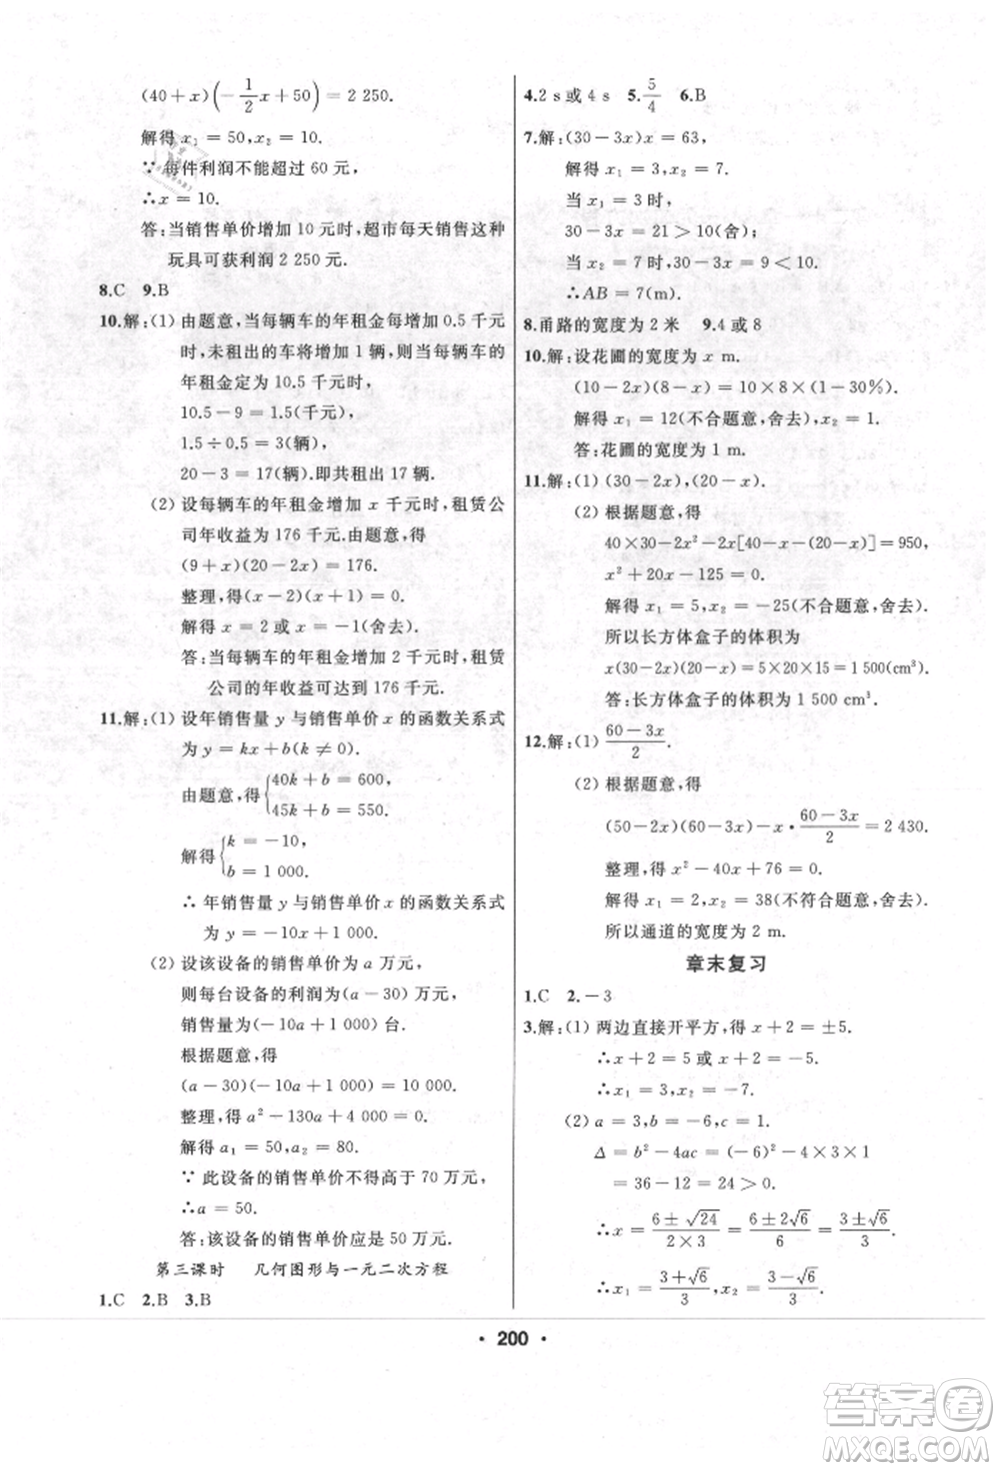 (40+x)(-1/2x+50)=2 250.
解得 x₁=50,x₂=10.
∵ 每件利润不能超过 60 元,
∴x=10.
答:当销售单价增加 10 元时,超市每天销售这种
玩具可获利润 2 250 元.
8.C 9.B
10.解:(1) 由题意,当每辆车的年租金每增加 0.5 千元
时,未租出的车将增加 1 辆,则当每辆车的
年租金定为 10.5 千元时,
10.5-9=1.5(千元),
1.5÷0.5=3(辆),
20-3=17(辆).即共租出 17 辆.
(2) 设每辆车的年租金增加 x 千元时,租赁公
司年收益为 176 千元.由题意,得
(9+x)(20-2x)=176.
整理,得(x-2)(x+1)=0.
解得 x=2 或 x=-1(舍去).
答:当每辆车的年租金增加 2 千元时,租赁
公司的年收益可达到 176 千元.
11.解:(1) 设年销售量 y 与销售单价 x 的函数关系式
为 y=kx+b(k≠0).
由题意,得{40k+b=600,
45k+b=550.
解得{k=-10,
b=1 000.
∴ 年销售量 y 与销售单价 x 的函数关系式
为 y=-10x+1 000.
(2) 设该设备的销售单价为 a 万元,
则每台设备的利润为(a-30)万元,
销售量为(-10a+1 000)台.
根据题意,得
(a-30)(-10a+1 000)=10 000.
整理,得 a²-130a+4 000=0.
解得 a₁=50,a₂=80.
∵ 此设备的销售单价不得高于 70 万元,
∴a=50.
答:该设备的销售单价应是 50 万元.
第三课时 几何图形与一元二次方程
1.C 2.B 3.B
4.2 s 或 4 s 5.5/4 6.B
7.解:(30-3x)x=63,
解得 x₁=3,x₂=7.
当 x₁=3 时,
30-3x₁=21>10(舍);
当 x₂=7 时,30-3x₂=9<10.
∴AB=7(m).
8.甬路的宽度为 2 米 9.4 或 8
10.解:设花圃的宽度为 x m.
(10-2x)(8-x)=10×8×(1-30%).
解得 x₁=12(不合题意,舍去),x₂=1.
答:花圃的宽度为 1 m.
11.解:(1) (30-2x),(20-x)
(2) 根据题意,得
40×30-2x²-2x[40-x-(20-x)]=950,
x²+20x-125=0.
解得 x₁=5,x₂=-25(不合题意,舍去).
所以长方体盒子的体积为
x(30-2x)(20-x)=5×20×15=1 500(cm³).
答:长方体盒子的体积为 1 500 cm³.
12.解:(1) (60-3x)/2.
(2) 根据题意,得
(50-2x)(60-3x)-x·(60-3x)/2=2 430.
整理,得 x²-40x+76=0.
解得 x₁=2,x₂=38(不符合题意,舍去).
所以通道的宽度为 2 m.
章末复习
1.C 2.-3
3.解:(1) 两边直接开平方,得 x+2=±5.
∴x+2=5 或 x+2=-5.
∴x₁=3,x₂=-7.
(2) a=3,b=-6,c=1.
Δ=b²-4ac=(-6)²-4×3×1
=36-12=24>0.
∴x=(6±√24)/(2×3)=(6±2√6)/6=(3±√6)/3.
∴x₁=(3+√6)/3,x₂=(3-√6)/3.
· 200 ·
答案圈
MXQE.COM